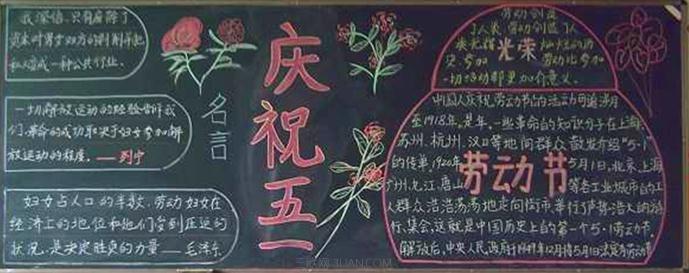 我深信,只有废除了
资本对男女双方的剥削并把
私人家成一种公共行业。
一切解放运动的经验告诉我
们,革命的成功取决于妇女参加解
放运动的程度。——列宁
妇女占人口的半数,劳动妇女在
经济上的地位和她们受到压迫的
状况,是决定胜负的力量——毛泽东
名言
庆祝五一
劳动创造
了人类 劳动创造了人
类光辉 灿烂的历
光荣
史,参加 劳动比参加
一切活动都更加有意义。
中国人庆祝劳动节的活动可追溯
至1918年,是年,一些革命的知识分子在上海、
苏州、杭州、汉口等地向群众散发介绍“5·1”
的传单。1920年5月1日,北京、上海
劳动节
广州、九江、唐山等各工业城市的工
人群众浩浩荡荡地走向街市,举行了声势浩大的游
行、集会,这就是中国历史上的第一个5·1劳动节。
解放后,中央人民政府于1949年12月将5月1日法定为劳动节
三联网3LIAN.COM